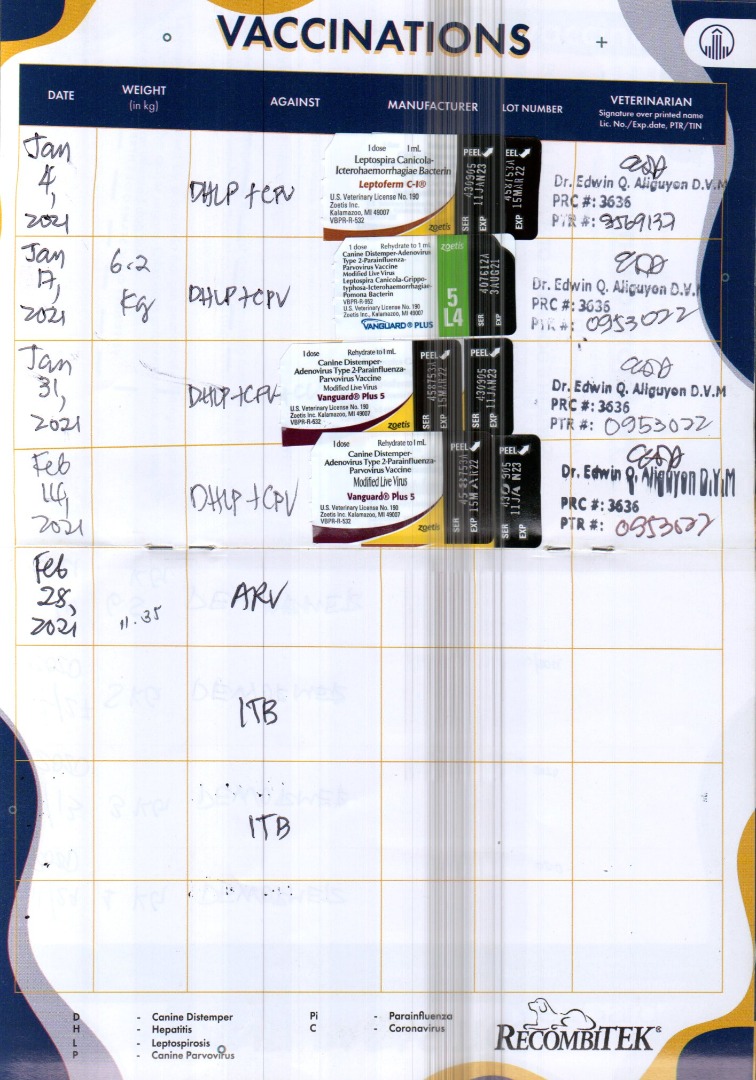 VACCINATIONS
DATE
WEIGHT
(in kg)
AGAINST
MANUFACTURER
LOT NUMBER
VETERINARIAN
Signature over printed name
Lic. No./Exp.date, PTR/TIN
Jan
4,
2021
DHLP+CPV
1 dose 1 mL
Leptospira Canicola-
Icterohaemorrhagiae Bacterin
Leptoferm C-I®
U.S. Veterinary License No. 190
Zoetis Inc.
Kalamazoo, MI 49007
VBPR-R-532
zoetis
PEEL
SER 430905
EXP 11JAN23
PEEL
458753A
EXP 15MAR22
Dr. Edwin Q. Aliguyon D.V.M
PRC #: 3636
PTR #: 9569137
Jan
17,
2021
6.2
Kg
DHLP+CPV
1 dose Rehydrate to 1 mL
Canine Distemper-Adenovirus
Type 2-Parainfluenza-
Parvovirus Vaccine
Modified Live Virus
Leptospira Canicola-Grippo-
typhosa-Icterohaemorrhagiae-
Pomona Bacterin
VBPR-R-952
U.S. Veterinary License No. 190
Zoetis Inc., Kalamazoo, MI 49007
VANGUARD® PLUS
zoetis
5
L4
SER 407612A
EXP 3AUG21
Dr. Edwin Q. Aliguyon D.V.
PRC #: 3636
PTR #: 0953022
Jan
31,
2021
DHLP+CPV
1 dose Rehydrate to 1 mL
Canine Distemper-
Adenovirus Type 2-Parainfluenza-
Parvovirus Vaccine
Modified Live Virus
Vanguard® Plus 5
U.S. Veterinary License No. 190
Zoetis Inc. Kalamazoo, MI 49007
VBPR-R-532
zoetis
PEEL
SER 458753A
EXP 15MAR22
PEEL
SER 430905
EXP 11JAN23
Dr. Edwin Q. Aliguyon D.V.M
PRC #: 3636
PTR #: 0953022
Feb
14,
2021
DHLP+CPV
1 dose Rehydrate to 1 mL
Canine Distemper-
Adenovirus Type 2-Parainfluenza-
Parvovirus Vaccine
Modified Live Virus
Vanguard® Plus 5
U.S. Veterinary License No. 190
Zoetis Inc. Kalamazoo, MI 49007
VBPR-R-532
zoetis
PEEL
SER
EXP 15MAR22
PEEL
SER 430905
EXP 11JAN23
Dr. Edwin Q. Aliguyon D.V.M
PRC #: 3636
PTR #: 0953022
Feb
28,
2021
11.35
ARV
ITB
ITB
D - Canine Distemper
H - Hepatitis
L - Leptospirosis
P - Canine Parvovirus
Pi - Parainfluenza
C - Coronavirus
RECOMBITEK®